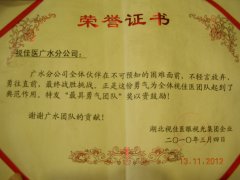 荣誉证书
视佳医广水分公司:
广水分公司全体伙伴在不可预知的困难面前,不轻言放弃,
勇往直前,最终战胜挑战,正是这份勇气为全体视佳医团队起到了
典范作用,特发“最具勇气团队”奖以资鼓励!
谢谢广水团队的贡献!
湖北视佳医眼视光集团企业
二〇一〇年三月四日
13.11.2012